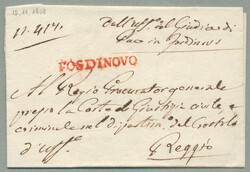 12.11.1808
N. 414.
Dall'Uff. del Giudice di
Pace in Fosdinovo
FOSDINOVO
Al Regio Procuratore generale
presso la Corte di Giustizia civile, e
criminale nel dipartim. del Crostolo
d'Uff.
Reggio